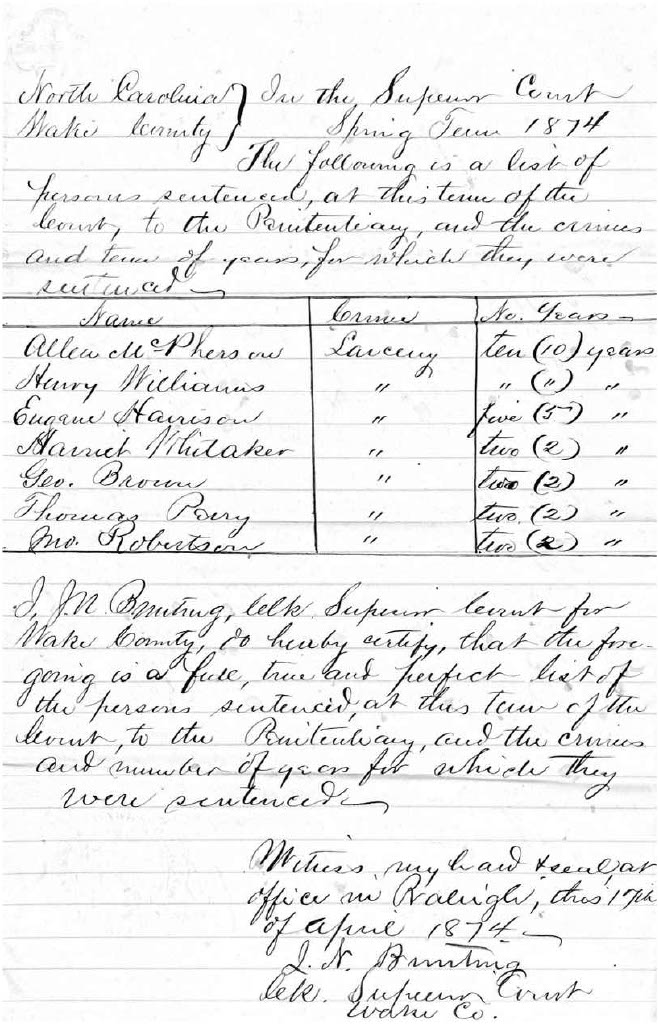 North Carolina } In the Superior Court
Wake County } Spring Term 1874
The following is a list of
persons sentenced, at this term of the
Court, to the Penitentiary, and the crimes
and term of years, for which they were
sentenced
Name Crime No. Years
Allen McPherson Larceny ten (10) years
Henry Williams " " (") "
Eugene Harrison " five (5) "
Harriet Whitaker " two (2) "
Geo. Brown " two (2) "
Thomas Perry " two (2) "
Jno. Robertson " two (2) "
I, J.N. Bunting, Clk. Superior Court for
Wake County, do hereby certify, that the fore-
going is a full, true and perfect list of
the persons sentenced, at this term of the
Court, to the Penitentiary, and the crimes
and number of years for which they
were sentenced
Witness, my hand & seal, at
office in Raleigh, this 17th
of April 1874
J. N. Bunting
Clk. Superior Court
Wake Co.